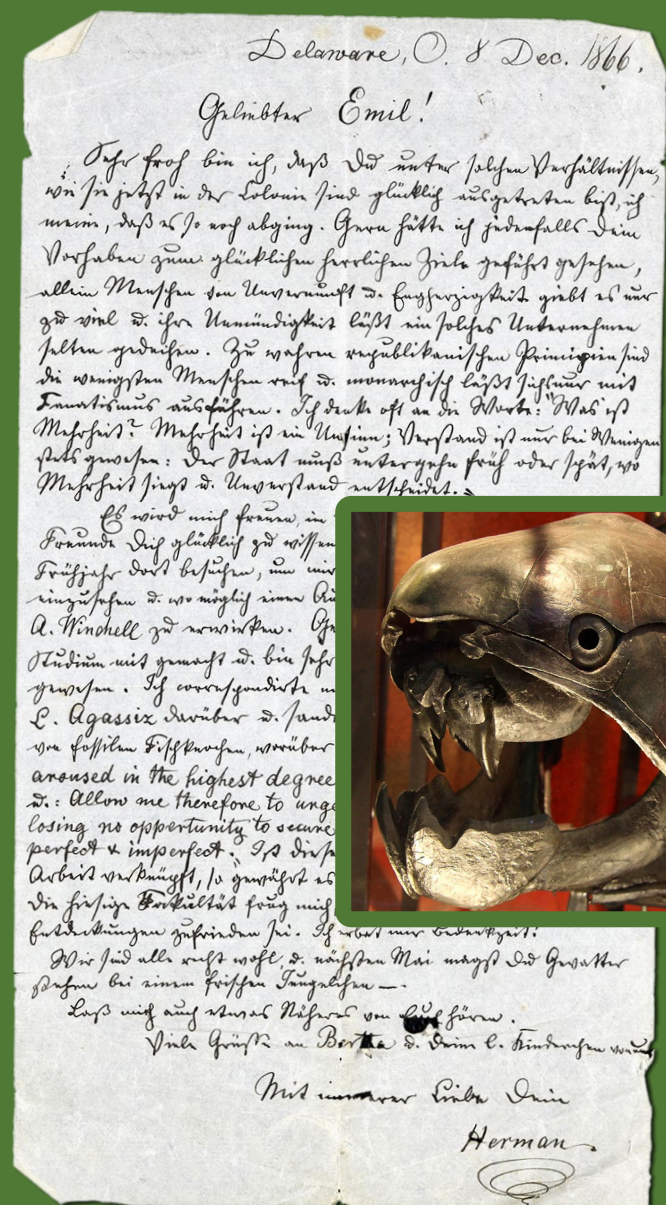 Delaware, O. 8 Dec. 1866.
Geliebter Emil!
Sehr froh bin ich, daß Du unter solchen Verhältnissen,
wie sie jetzt in der Colonie sind glücklich ausgetreten bist, ich
meine, daß es so noch abging. Gern hätte ich jedenfalls Dein
Vorhaben zum glücklichen herrlichen Ziele geführt gesehen,
allein Menschen von Unvernunft u. Engherzigkeit giebt es nur
zu viel u. ihre Unmündigkeit läßt ein solches Unternehmen
selten gedeihen. Zu wahren republikanischen Prinzipien sind
die wenigsten Menschen reif u. monarchisch läßt sichs nur mit
Fanatismus ausführen. Ich denke oft an die Worte: "Was ist
Mehrheit? Mehrheit ist ein Unsinn; Verstand ist nur bei Wenigen
stets gewesen: Der Staat muß untergehn früh oder spät, wo
Mehrheit siegt u. Unverstand entscheidet."
Es wird mich freuen, in
Freunde Dich glücklich zu wissen
Frühjahr dort besuchen, um mir
einzusehen u. wo möglich einen
A. Winchell zu erwirken.
Studium mit gemacht u. bin sehr
gewesen. Ich correspondirte
L. Agassiz darüber u. sand
von fossilen Fischknochen, worüber
aroused in the highest degree
u.: Allow me therefore to urge
losing no opportunity to secure
perfect & imperfect." Ist diese
Arbeit verknüpft, so gewährt es
Die hiesige Fakultät frug mich
Entdeckungen zufrieden sei. Ich erbat mir Bedenkzeit!
Wir sind alle recht wohl, u. nächsten Mai magst Du Gevatter
stehen bei einem frischen Jüngelchen —.
Laß mich auch etwas Näheres von Euch hören.
Viele Grüße an Bertha u. Deine l. Kinderchen
Mit innerer Liebe Dein
Herman.